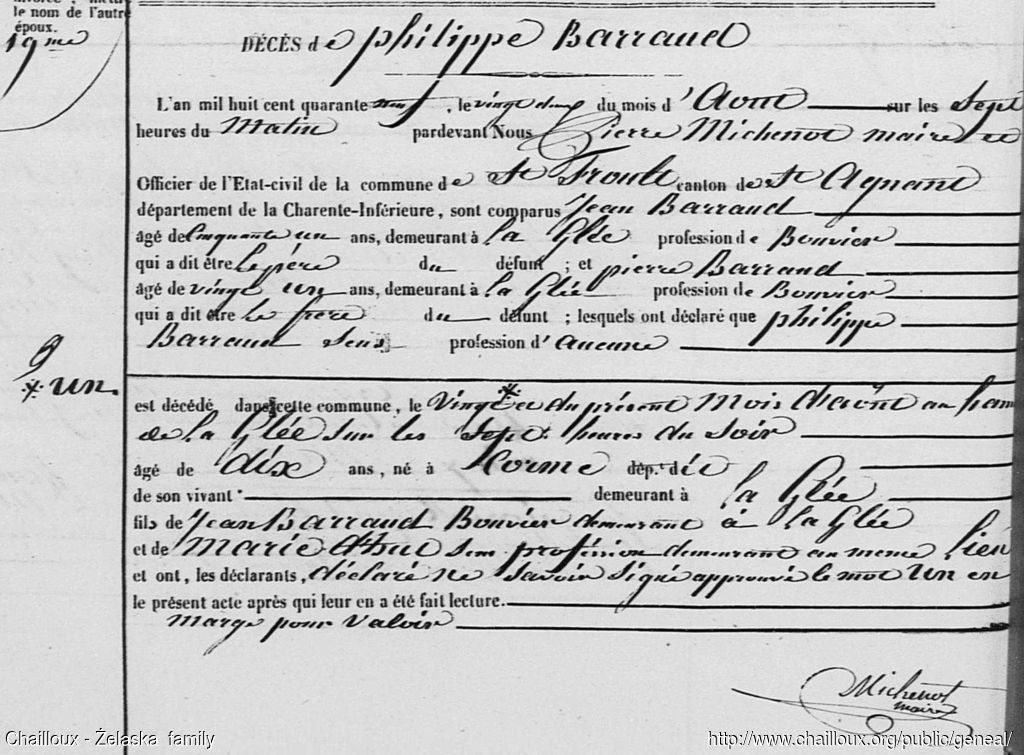 le nom de l'autre
époux.
19me
DÉCÈS de philippe Barraud
L'an mil huit cent quarante neuf, le vingt deux du mois d'Aout sur les Sept
heures du Matin pardevant Nous Pierre Michenot maire et
Officier de l'Etat-civil de la commune de St Froult canton de St Agnant
département de la Charente-Inférieure, sont comparus Jean Barraud
âgé de Cinquante un ans, demeurant à la Glée profession de Bouvier
qui a dit être le père du défunt ; et pierre Barraud
âgé de vingt un ans, demeurant à la Glée profession de Bouvier
qui a dit être le frere du défunt ; lesquels ont déclaré que philippe
Barraud sens profession d'aucune
9
* un.
est décédé dans cette commune, le Vingt * et du présent Mois d'aoùt au ham
de la Glée sur les sept heures du soir
âgé de dix ans, né à Corme dép.t dée
de son vivant demeurant à la Glée
fils de Jean Barraud Bouvier demeurant à la Glée
et de Marie sens profession demeurant au meme lieu
et ont, les déclarants, déclaré ne savoir signé approuvé le mot un en
le présent acte après qui leur en a été fait lecture.
Marge pour valoir
Michenot
maire
Chailloux - Želaska family
http://www.chailloux.org/public/geneal/